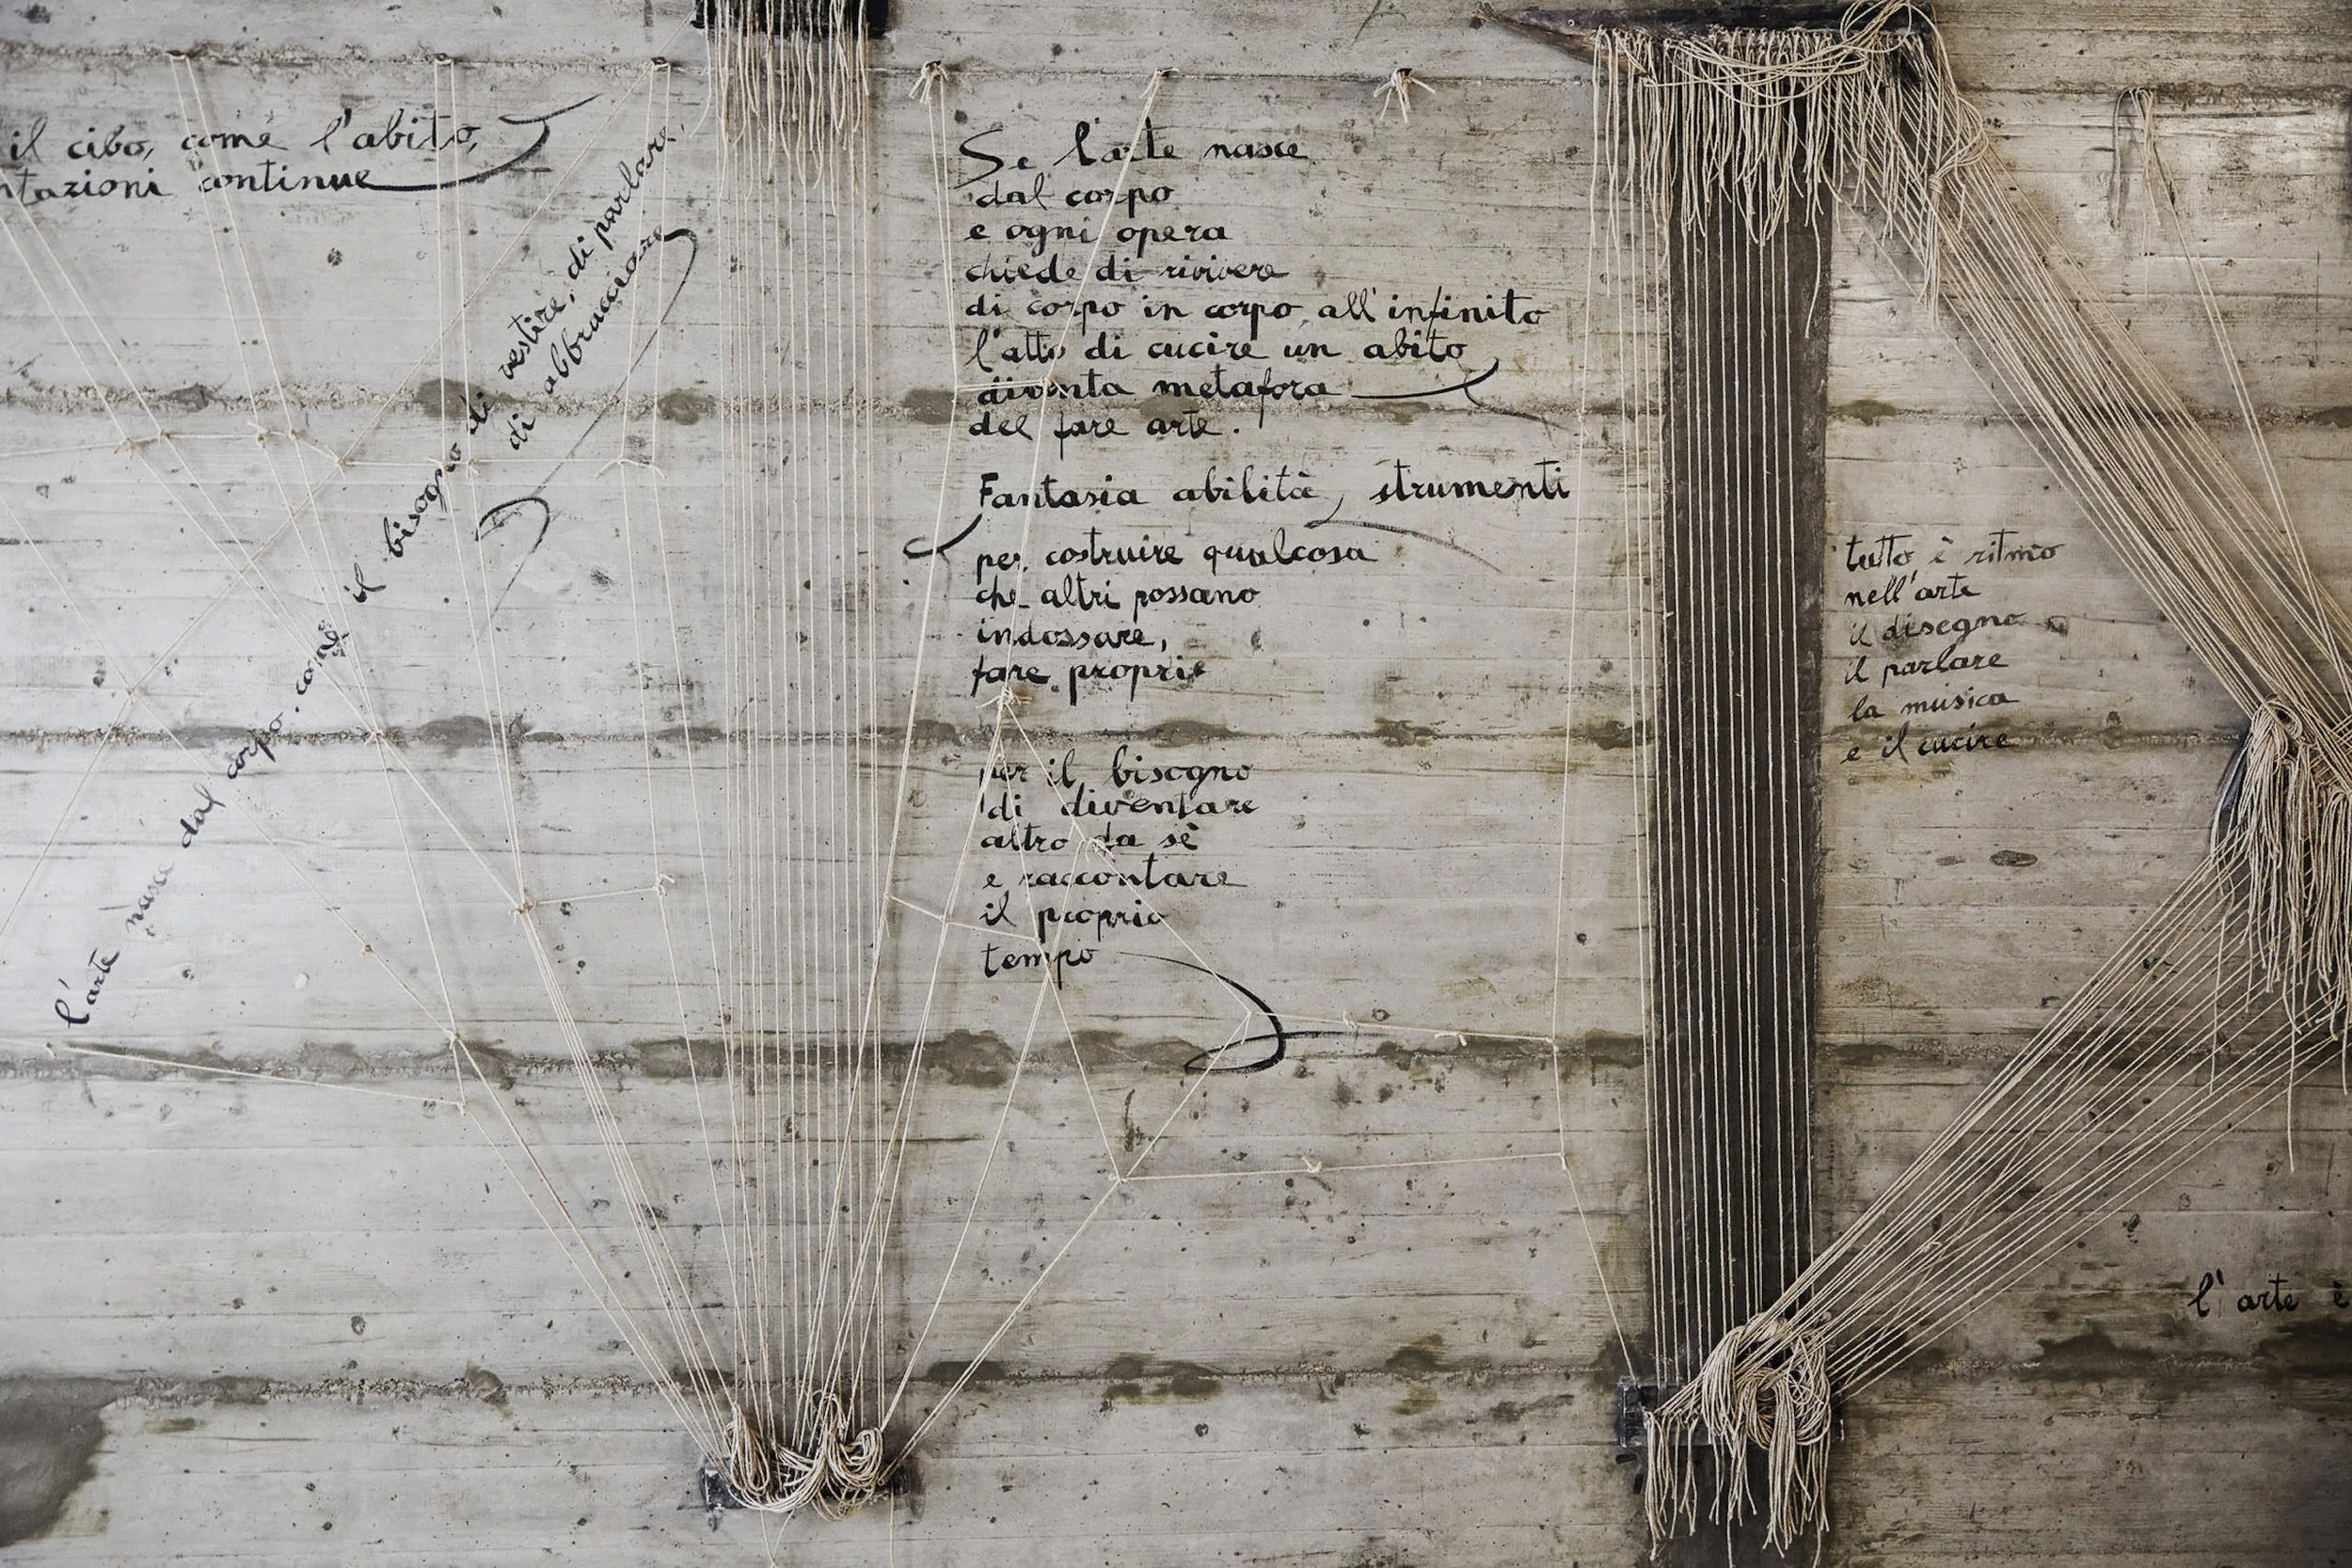 il cibo, come l'abito,
ntazioni continue
l'arte nasce dal corpo. come il bisogno di vestire, di parlare,
di abbracciare
Se l'arte nasce
dal corpo
e ogni opera
chiede di rivivere
di corpo in corpo all'infinito
l'atto di cucire un abito
diventa metafora
del fare arte.
Fantasia abilità, strumenti
per costruire qualcosa
che altri possano
indossare,
fare proprie
per il bisogno
di diventare
altro da sè
e raccontare
il proprio
tempo
tutto è ritmo
nell'arte
il disegno
il parlare
la musica
e il cucire
l'arte è